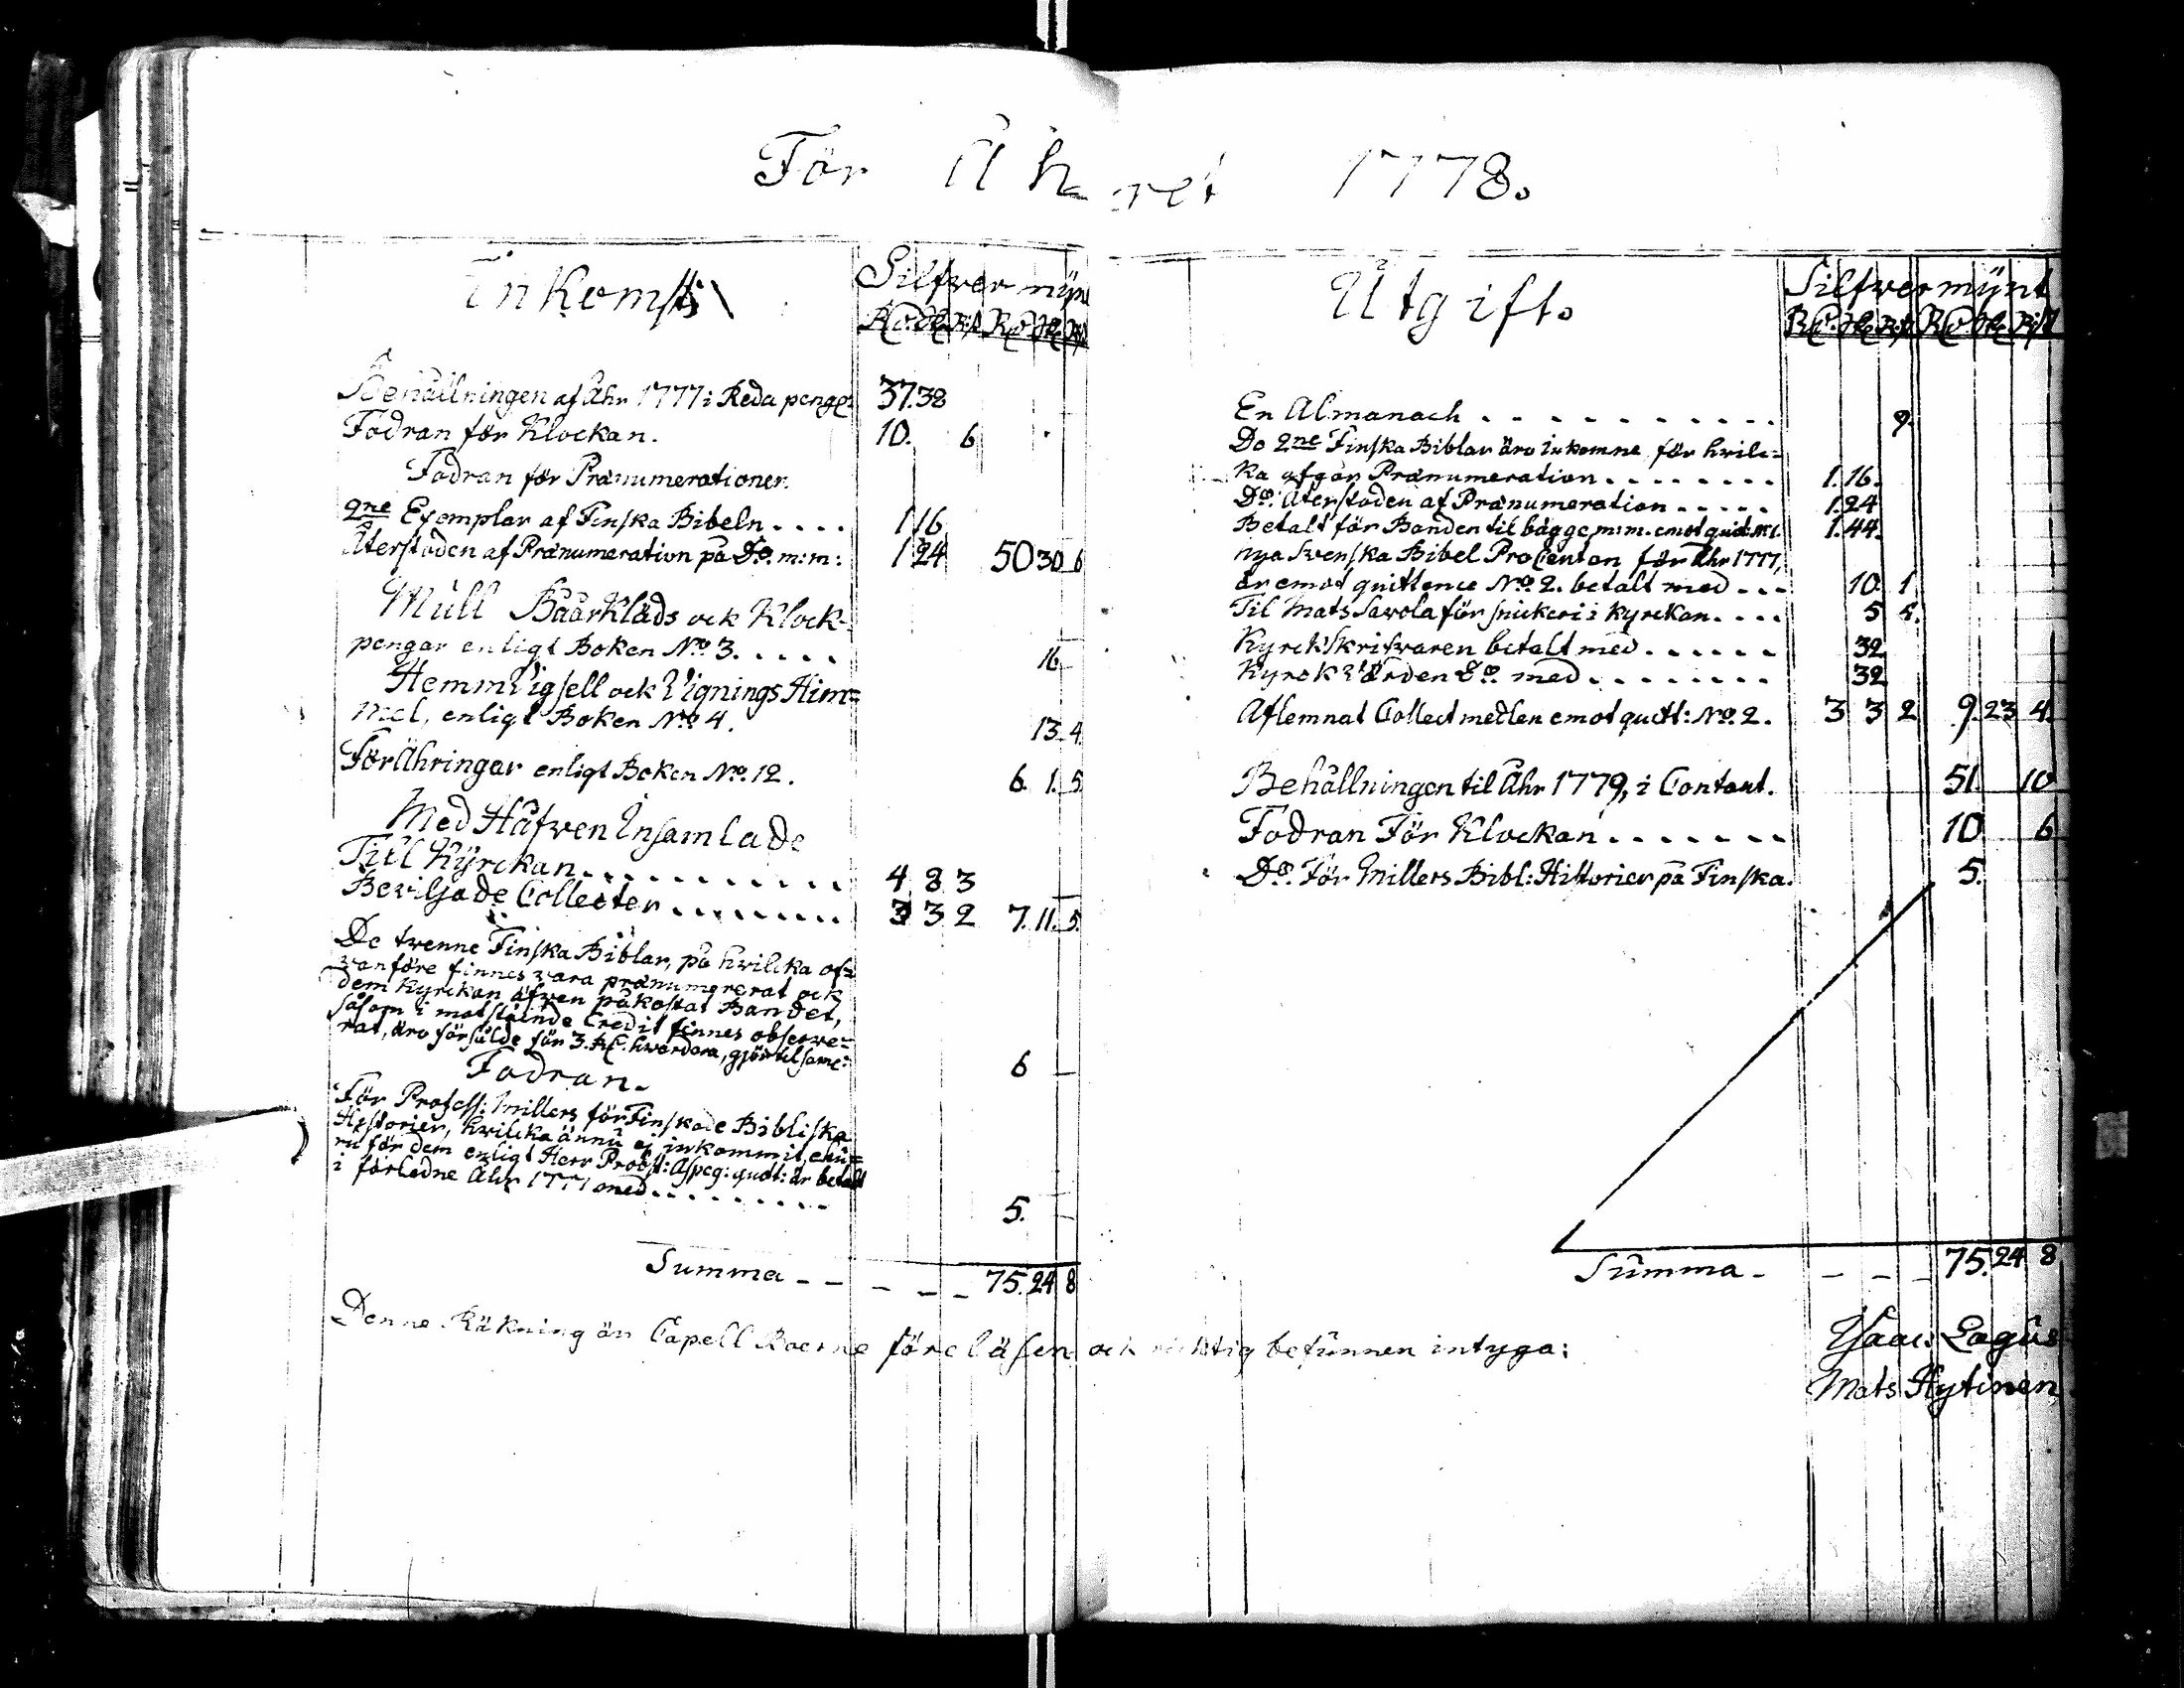 För Åhret 1778.
Inkomst
Silfver mynt
Behållningen af Åhr 1777 i Reda peng: 37.38
Fodran för Klockan. 10. 6
Fodran för Prænumerationer.
2ne Exemplar af Finska Bibeln.... 1 16
Återstoden af Prænumeration på Do. m:m: 1 24 50 30 6
Mull Båårkläds ock Klock-
pengar enligt Boken No. 3..... 16
Hemm Vigsell ock Vignings Him=
mel, enligt Boken No. 4. 13 4
FörÄhringar enligt Boken No. 12. 6. 1. 5
Med Håfven Insamlade
Till Kyrckan........... 4 8 3
Beviljade Collecter....... 3 3 2 7. 11. 5.
De tvenne Finska Biblar, på hvilcka of=
vanföre finnes vara prænumererat ock
dem Kyrckan äfven påkostat Bandet,
såsom i motstående Credit finnes observe=
rat, äro försålde för 3. R. hvardera, giör tilsame:
6
Fodran.
För Profess: Millers förFinskade Bibliska
Historier, hvilcka ännu ej inkommit, ehu=
ru för dem enligt Herr Probst: Aspeg: quitt: är betalt
i förledne Åhr 1777 med......... 5.
Summa - - - - - 75. 24 8
Utgift.
Silfver mynt
En Almanach........... 9.
Do 2ne Finska Biblar äro inkomne, för hvilc=
ka afgår Prænumeration........ 1. 16.
Do. Återstoden af Prænumeration..... 1. 24
Betalt för Banden til bägge m:m. emot quitt. No 1. 1. 44.
nya Svenska Bibel ProCenton för Åhr 1777,
är emot quittence No. 2. betalt med... 10. 1
Til Mats Savola för snickeri i Kyrckan.... 5 5.
Kyrck Skrifvaren betalt med...... 32
Kyrck Vården Do. med........ 32
Aflemnat Collect medlen emot quitt: No. 2. 3 3 2 9. 23 4.
Behållningen til Åhr 1779, i Contant. 51. 10
Fodran För Klockan....... 10 6
Do. För Millers Bibl: Historier på Finska. 5.
Summa - - - - 75. 24 8
Denne Räkning är Capell Boerne föreläsen ock richtig befunnen intyga:
Isaac Lagus
Mats Hytinen